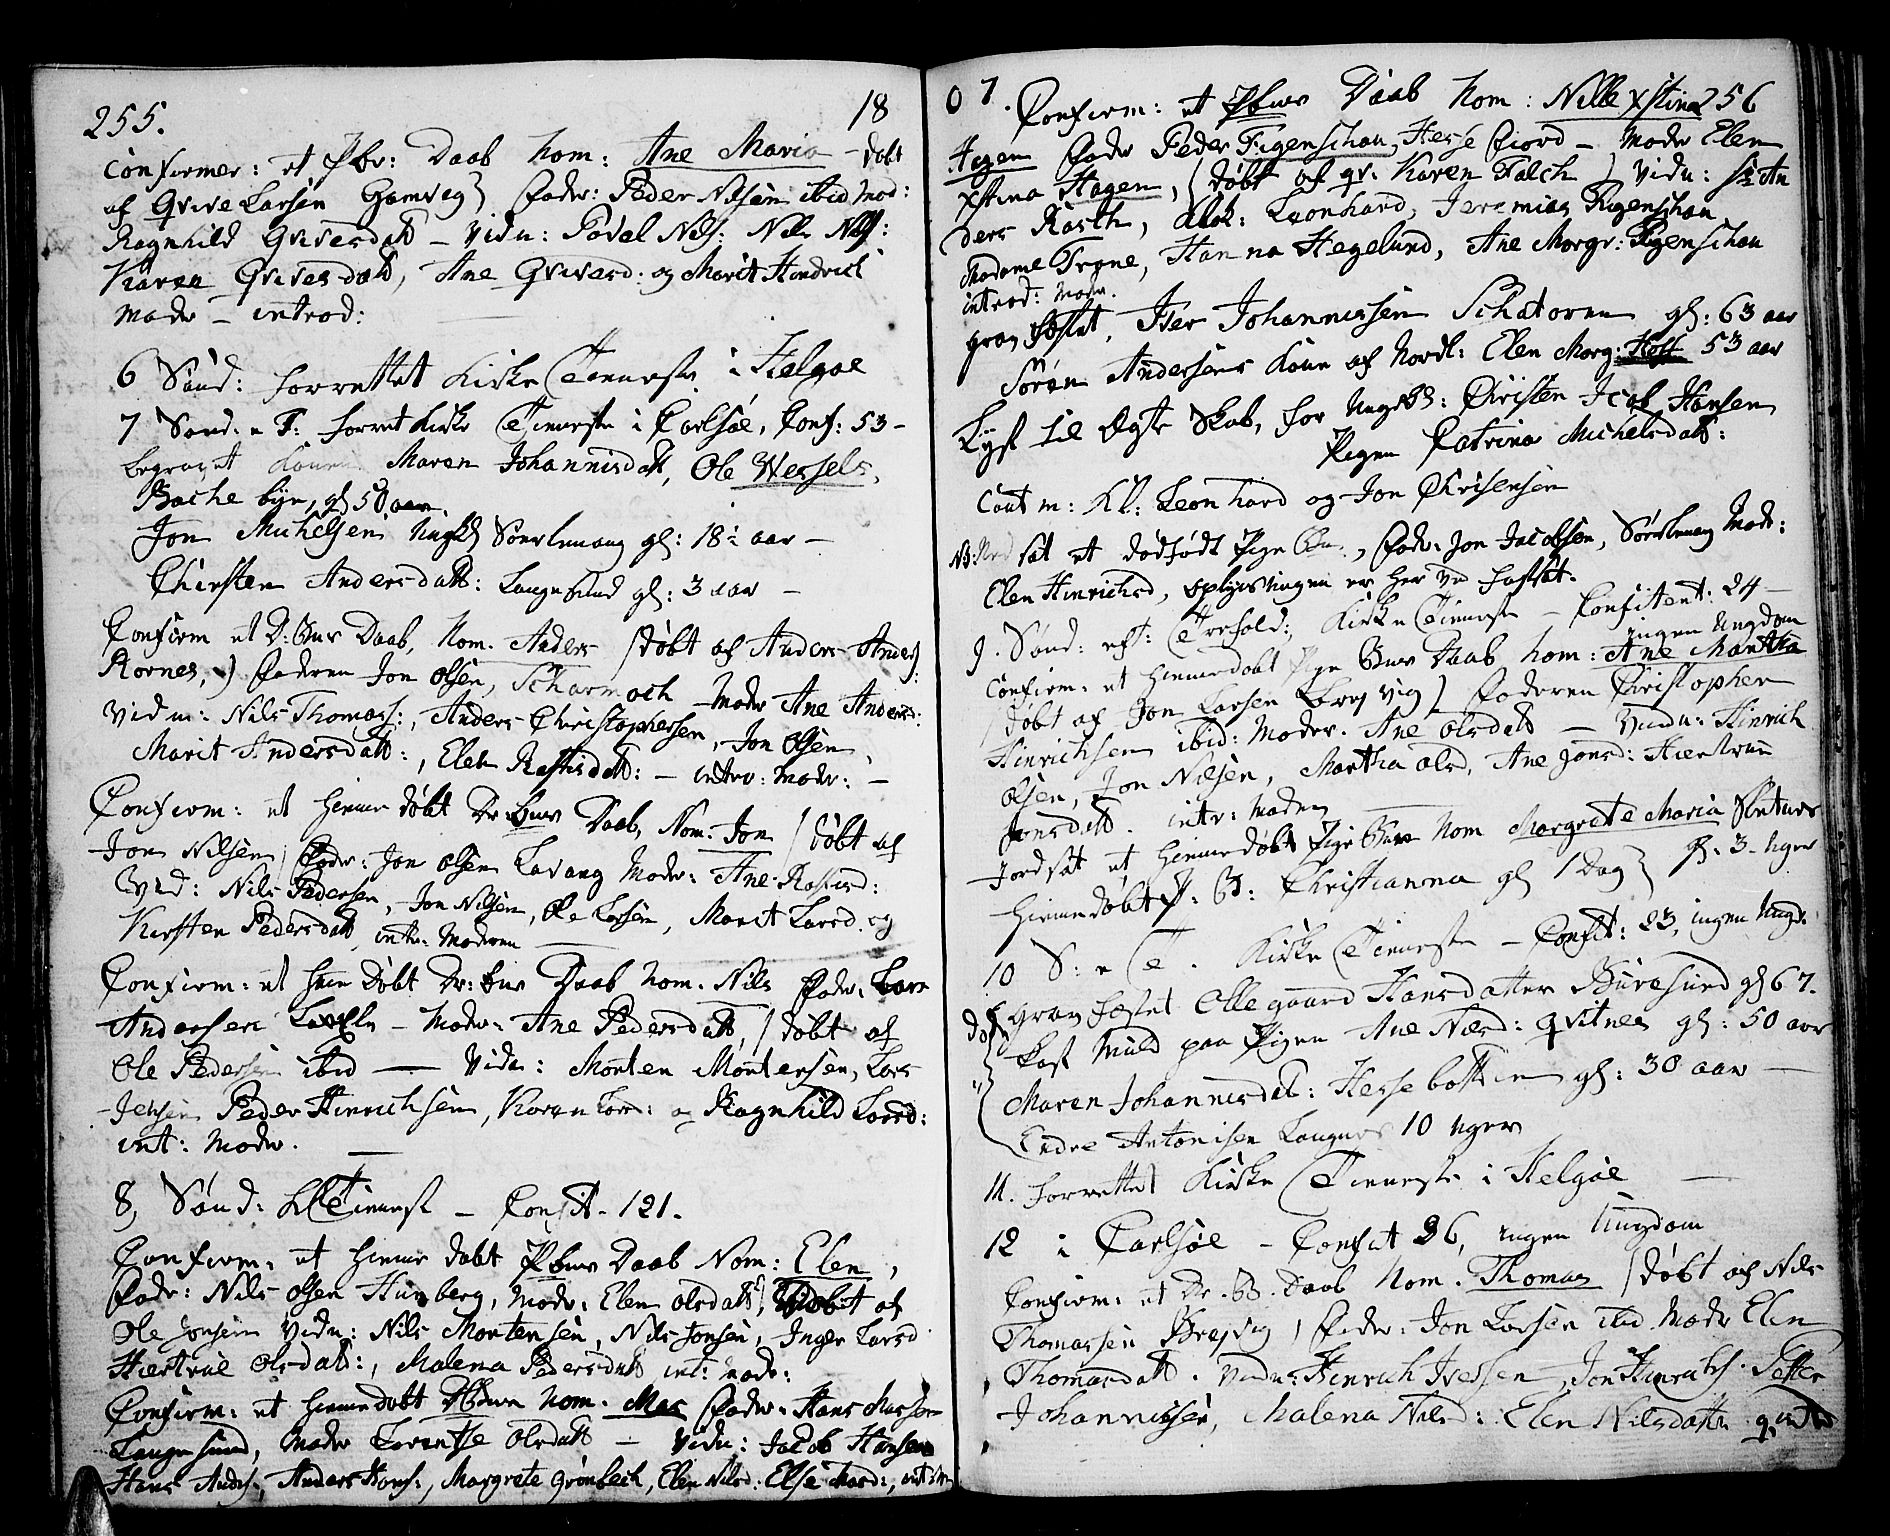 255.
18
Confirmer: et Pbr: Daab nom: Ane Maria - døbt
af Qvive Larsen Gamvig) Fadr: Peder Nilsen ibid Mod:
Ragnhild Qvivesdatt - Vidn: Povel Nils: Nils Nils:
Karen Qvivesdatt, Ane Qvivesd: og Marit Hendrich
Modr - introd:
6 Sønd: forrettet Kirke Tieneste i Helgøe
7 Sønd: e T: forret Kirke Tieneste i Carlsøe, Conf: 53 -
begravet Konen Maren Johannisdatt, Ole Wessels,
Backe byn, gl 50 aar.
Jon Michelsen Ungk Sørlenang gl: 18½ aar -
Chirsten Andersdatt: Langesund gl: 3 aar -
Confirm et D: Burs Daab, Nom. Anders (døbt af Anders Anders:
Stornes,) Faderen Jon Olsen, Scharmoch Modr Ane Andersd:
Vidn: Nils Thomass:, Anders Christophersen, Jon Olsen,
Marit Andersdatt:, Elen Rastisdatt: - intro: Modr: -
Confirm: et hiemme døbt Dr: Burs Daab, Nom: Jon (døbt af
Jon Nilsen) Fadr: Jon Olsen Lavang Modr: Ane Rastisd:
Vid: Nils Pedersen, Jon Nilsen, Ole Larsen, Marit Larsd. og
Kirsten Pedersdatt, intr: Moderen
Confirm: et hiem døbt Dr: burs Daab Nom. Nils Fadr: Lars
Andersen - Modr: Ane Pedersdatt, (døbt af
Ole Pedersen ibid - Vidn: Morten Mortensen, Lars
Jensen Peder Hinrichsen, Karen Lars: og Ragnhild Larsd:
int: Modr.
8, Sønd: K Tieneste - Confit. 121.
Confirm: et hiemme døbt Pburs Daab Nom: Elen,
Fadr: Nils Olsen Humberg, Modr: Elen Olsdatt, døbt af
Ole Jonsen Vidn: Nils Mortensen, Nils Jonsen, Inger Larsd
Hiertrue Olsdatt:, Malena Pedersdatt int: Modr:
Confirm: et hiemmedøbt nom. Mas Fadr: Hans Massen
Langesund, Modr Lorentse Olsdatt - Vidn: Jacob Hansen
Hans Anders:, Anders Hans:, Margrete Grønbech, Elen Nilsd: Else Marsd:, int
07.
256
Confirm: et Pburs Daab Nom: Nille Xstina
Hegen Fadr Peder Figenschau, Hesse Fiord - Modr Elen
Xstina Hagen, (døbt af gr. Karen Falch) Vidn: Sr An
ders Kastk, Klok: Leonhard, Jeremias Figenschau
Madame Trane, Hanna Hegelund, Ane Margr: Figenschau
introd: Modr.
grav fæstet, Iver Johannissen Schatoren gl: 63 aar
Søren Andersens Kone af Nordl: Elen Marg: Hoff 53 aar
Lyst til Ægte Skab, for Ungk: Christen Jcob Hansen
Pigen Catrina Michelsdatt:
Caut m: Kl: Leonhard og Jon Chrisensen
NB: Jord sat et dødfødt Pige Bn:, Fadr: Jon Jacobsen, Sørlenang Modr:
Elen Hinrichsd, oplysningen er her ved fastsat.
9. Sønd: eft: Trefold:, Kirke Tieneste - Confitent: 24 -
ingen Ungdom
Confirm: et hiemmedøbt Pige Burs Daab nom: Ane Martha
(døbt af Jon Larsen Larsvig) Faderen Christopher
Hinrichsen ibid: Moder. Ane Olsdatt - Vidn: Hinrich
Olsen, Jon Nilsen, Martha Olsd, Ane Jonsd: Hiertrue
Jonsdatt. intr: Moderen
Jordsat et hiemme døbt Pige Burn Nom Margrete Maria
hiemmedøbt P: B: Christianna gl 1 Dag) gl: 3 Uger
10 S: e T. Kirke Tieneste - Confit: 23, ingen Ungd.
grav fæstet Ollegaard Hansdatter Burøsund gl 67.
Kast Muld paa Pigen Ane Næsd: Qvitnes gl: 50 aar
Maren Johannisdat: Hessebotten gl: 30 aar -
Endre Antonisen Langnes 10 Uger
11. forrettet Kirke Tieneste i Helgøe
12 i Carlsøe - Confit 36, ingen Ungdom
Confirm: et Dr. B. Daab Nom. Thomas (døbt af Nils
Thomassen Breivig) Fadr: Jon Larsen ibid Modr Elen
Thomasdatt. Vidn: Hinrich Ivessen, Jon Hinrichs: Petter
Johannissen, Malena Nilsd: Elen Nilsdatt